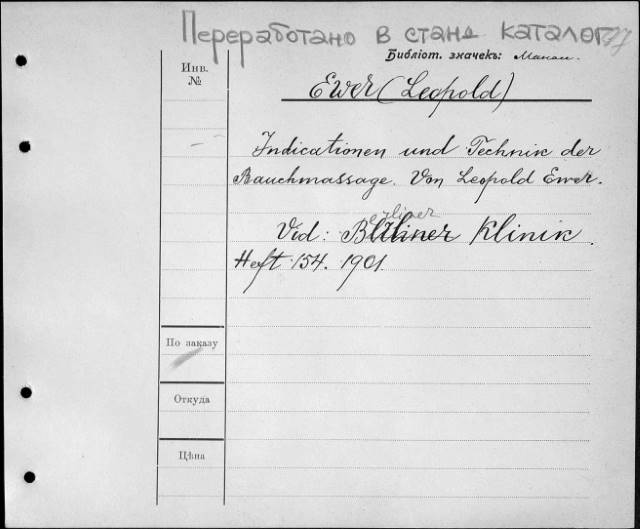 Переработано в станд каталог
Библіот. значекъ:
Инв.
№
Ewer (Leopold)
Indicationen und Technik der
Bauchmassage. Von Leopold Ewer.
erliner
Vid: Berliner Klinik.
Heft 154. 1901.
По заказу
Откуда
Цѣна